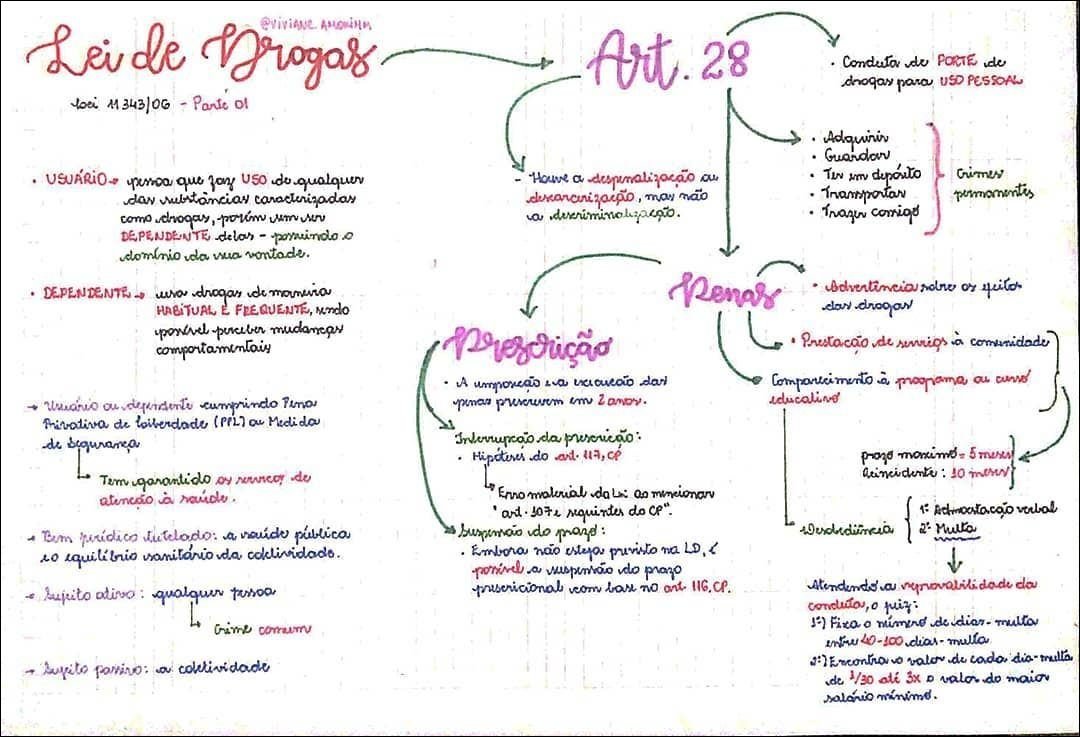 @VIVIANE.AMORIMM
Lei de Drogas
Lei 11 343/06 - Parte 01
• USUÁRIO → pessoa que faz USO de qualquer
das substâncias caracterizadas
como drogas, porém sem ser
DEPENDENTE delas - possuindo o
domínio da sua vontade.
• DEPENDENTE → usa drogas de maneira
HABITUAL E FREQUENTE, sendo
possível perceber mudanças
comportamentais
→ Usuário ou dependente cumprindo Pena
Privativa de Liberdade (PPL) ou Medida
de Segurança
Tem garantido os serviços de
atenção à saúde.
→ Bem jurídico tutelado: a saúde pública
e o equilíbrio sanitário da coletividade.
→ Sujeito ativo: qualquer pessoa
Crime comum
→ Sujeito passivo: a coletividade
Art. 28
• Conduta de PORTE de
drogas para USO PESSOAL
- Houve a despenalização ou
descarcerização, mas não
a descriminalização.
• Adquirir
• Guardar
• Ter em depósito
• Transportar
• Trazer comigo
Crimes
permanentes
Prescrição
• A imposição e a execução das
penas prescrevem em 2 anos.
Interrupção da prescrição:
• Hipóteses do art. 117, CP
Erro material da Lei ao mencionar
"art. 107 e seguintes do CP".
Suspensão do prazo:
• Embora não esteja previsto na LD, é
possível a suspensão do prazo
prescricional com base no art 116, CP.
Penas
• Advertência sobre os efeitos
das drogas
• Prestação de serviços à comunidade
Comparecimento à programa ou curso
educativo
prazo máximo = 5 meses
Reincidente: 10 meses
Desobediência
1º Admoestação verbal
2º Multa
Atendendo a reprovabilidade da
conduta, o juiz:
1º) Fixa o número de dias-multa
entre 40-100 dias-multa
2º) Encontra o valor de cada dia-multa
de 1/30 até 3x o valor do maior
salário mínimo.